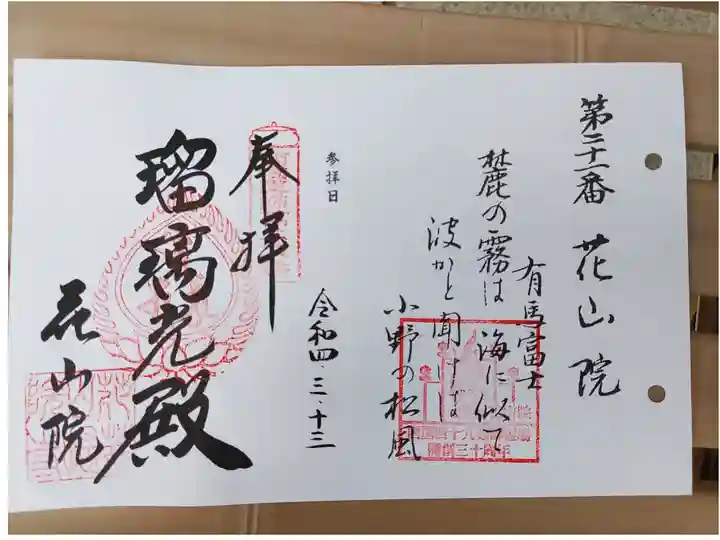 第二十一番 花山院
有馬富士
麓の霧は 海に似て
波かと聞けば
小野の松風
参拝日
令和四、三、十三
奉拝
瑠璃光殿
花山院
開創三十周年